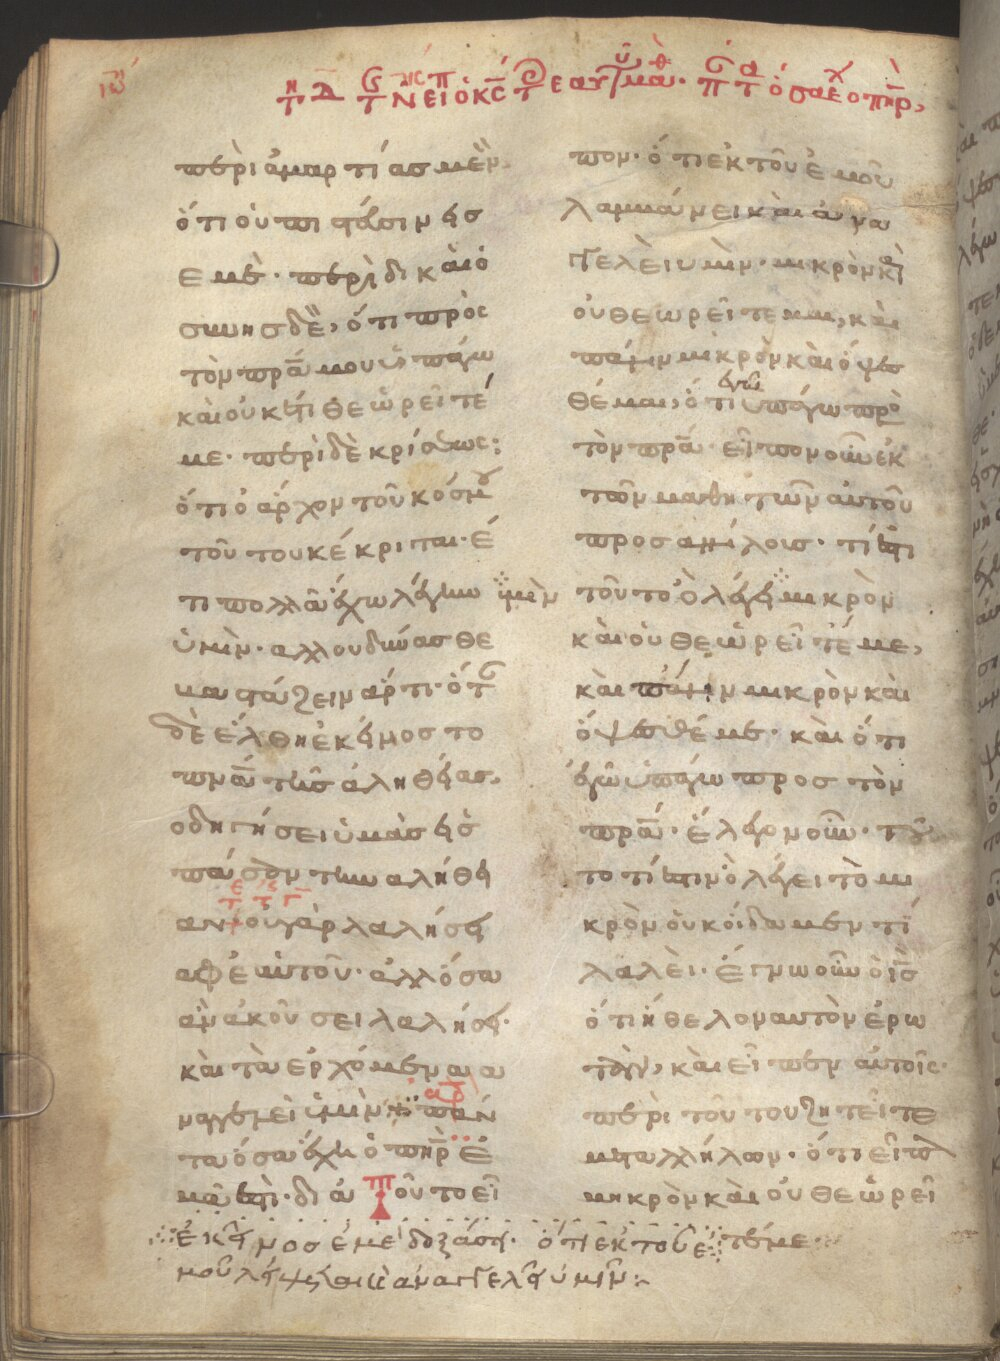 ιω
τη Δ της Ν ειπ ο κς τ εαυτ μαθ. π τ οσα εχ ο πηρ,
περι αμαρτίας μὲν
ὅτι οὐ πιστεύουσιν εἰς
ἐμέ· περὶ δικαιο
σύνης δὲ, ὅτι πρὸς
τὸν πρα μου ὑπάγω
καὶ οὐκέτι θεωρεῖτέ
με· περὶ δὲ κρίσεως·
ὅτι ὁ ἄρχων τοῦ κόσμου
τούτου κέκριται· ἔ
τι πολλὰ ἔχω λέγειν
ὑμῖν· ἀλλ οὐ δύνασθε
βαστάζειν ἄρτι· ὅταν
δὲ ἔλθῃ ἐκεῖνος τὸ
πνα τῆς ἀληθείας,
ὁδηγήσει ὑμᾶς εἰς
πᾶσαν τὴν ἀλήθει
αν οὐ γὰρ λαλήσει
ἀφ ἑαυτοῦ· ἀλλ ὅσα
ἂν ἀκούσει λαλήσει·
καὶ τὰ ἐρχόμενα ἀ
ναγγελεῖ ὑμῖν πάν
τα ὅσα ἔχει ὁ πηρ ἐ
μά ἐστι· διὰ τοῦτο εἶ
ἐκεῖνος ἐμὲ δοξάσει· ὅτι ἐκ τοῦ ἐ
μοῦ λήψεται καὶ ἀναγγελεῖ ὑμῖν:
πον· ὅτι ἐκ τοῦ ἐμοῦ
λαμβάνει καὶ ἀνα
γγελεῖ ὑμῖν· μικρὸν καὶ
οὐ θεωρεῖτε με, καὶ
πάλιν μικρὸν καὶ ὄψεσ
θέ με, ὅτι ἐγὼ ὑπάγω πρὸ
τὸν πρα· εἶπον οὖν ἐκ
τῶν μαθητῶν αὐτοῦ
πρὸς ἀλλήλους· τί ἐστι
τοῦτο ὃ λέγει ἡμῖν μικρὸν
καὶ οὐ θεωρεῖτέ με,
καὶ πάλιν μικρὸν καὶ
ὄψεσθέ με· καὶ ὅτι
ἐγὼ ὑπάγω πρὸς τὸν
πρα· ἔλεγον οὖν· τοῦ
το τί ἐστιν ὃ λέγει τὸ μι
κρὸν οὐκ οἴδαμεν τί
λαλεῖ· ἔγνω οὖν ὁ ις
ὅτι ἤθελον αὐτὸν ἐρω
τᾶν, καὶ εἶπεν αὐτοῖς·
περὶ τούτου ζητεῖτε
μετ ἀλλήλων· ὅτι εἶπον
μικρὸν καὶ οὐ θεωρεῖ
τέ με·